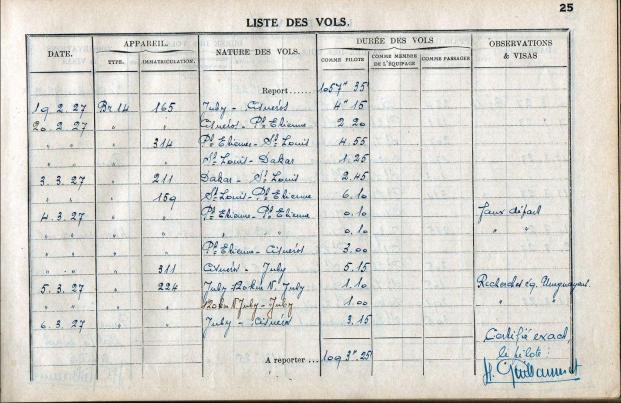 25
LISTE DES VOLS.
DATE. APPAREIL. NATURE DES VOLS. DURÉE DES VOLS OBSERVATIONS & VISAS
TYPE. IMMATRICULATION. COMME PILOTE COMME MEMBRE DE L'ÉQUIPAGE COMME PASSAGER
Report...... 1057" 35
19 2. 27 Br 14 165 Juby - Cisneros 4" 15
20. 2. 27 " " Cisneros - Pt Etienne 2 20
" " " 314 Pt Etienne - St Louis 4.55
" " " " St Louis - Dakar 1.25
3. 3. 27 " 211 Dakar - St Louis 2.45
" " " 159 St Louis - Pt Etienne 6.10
4. 3. 27 " " Pt Etienne - Pt Etienne 0.10 Faux départ
" " " " " " 0.10 " "
" " " " Pt Etienne - Cisneros 3.00
" " " 311 Cisneros - Juby 5.15
5. 3. 27 " 224 Juby 20km N. Juby 1.10 Recherches éq. Uruguayens.
" " " " 20km N Juby - Juby 1.00 " "
6. 3. 27 " " Juby - Cisneros 3.15
Certifié exact,
le pilote :
A reporter ... 109 3" 25
H. Guillaumet